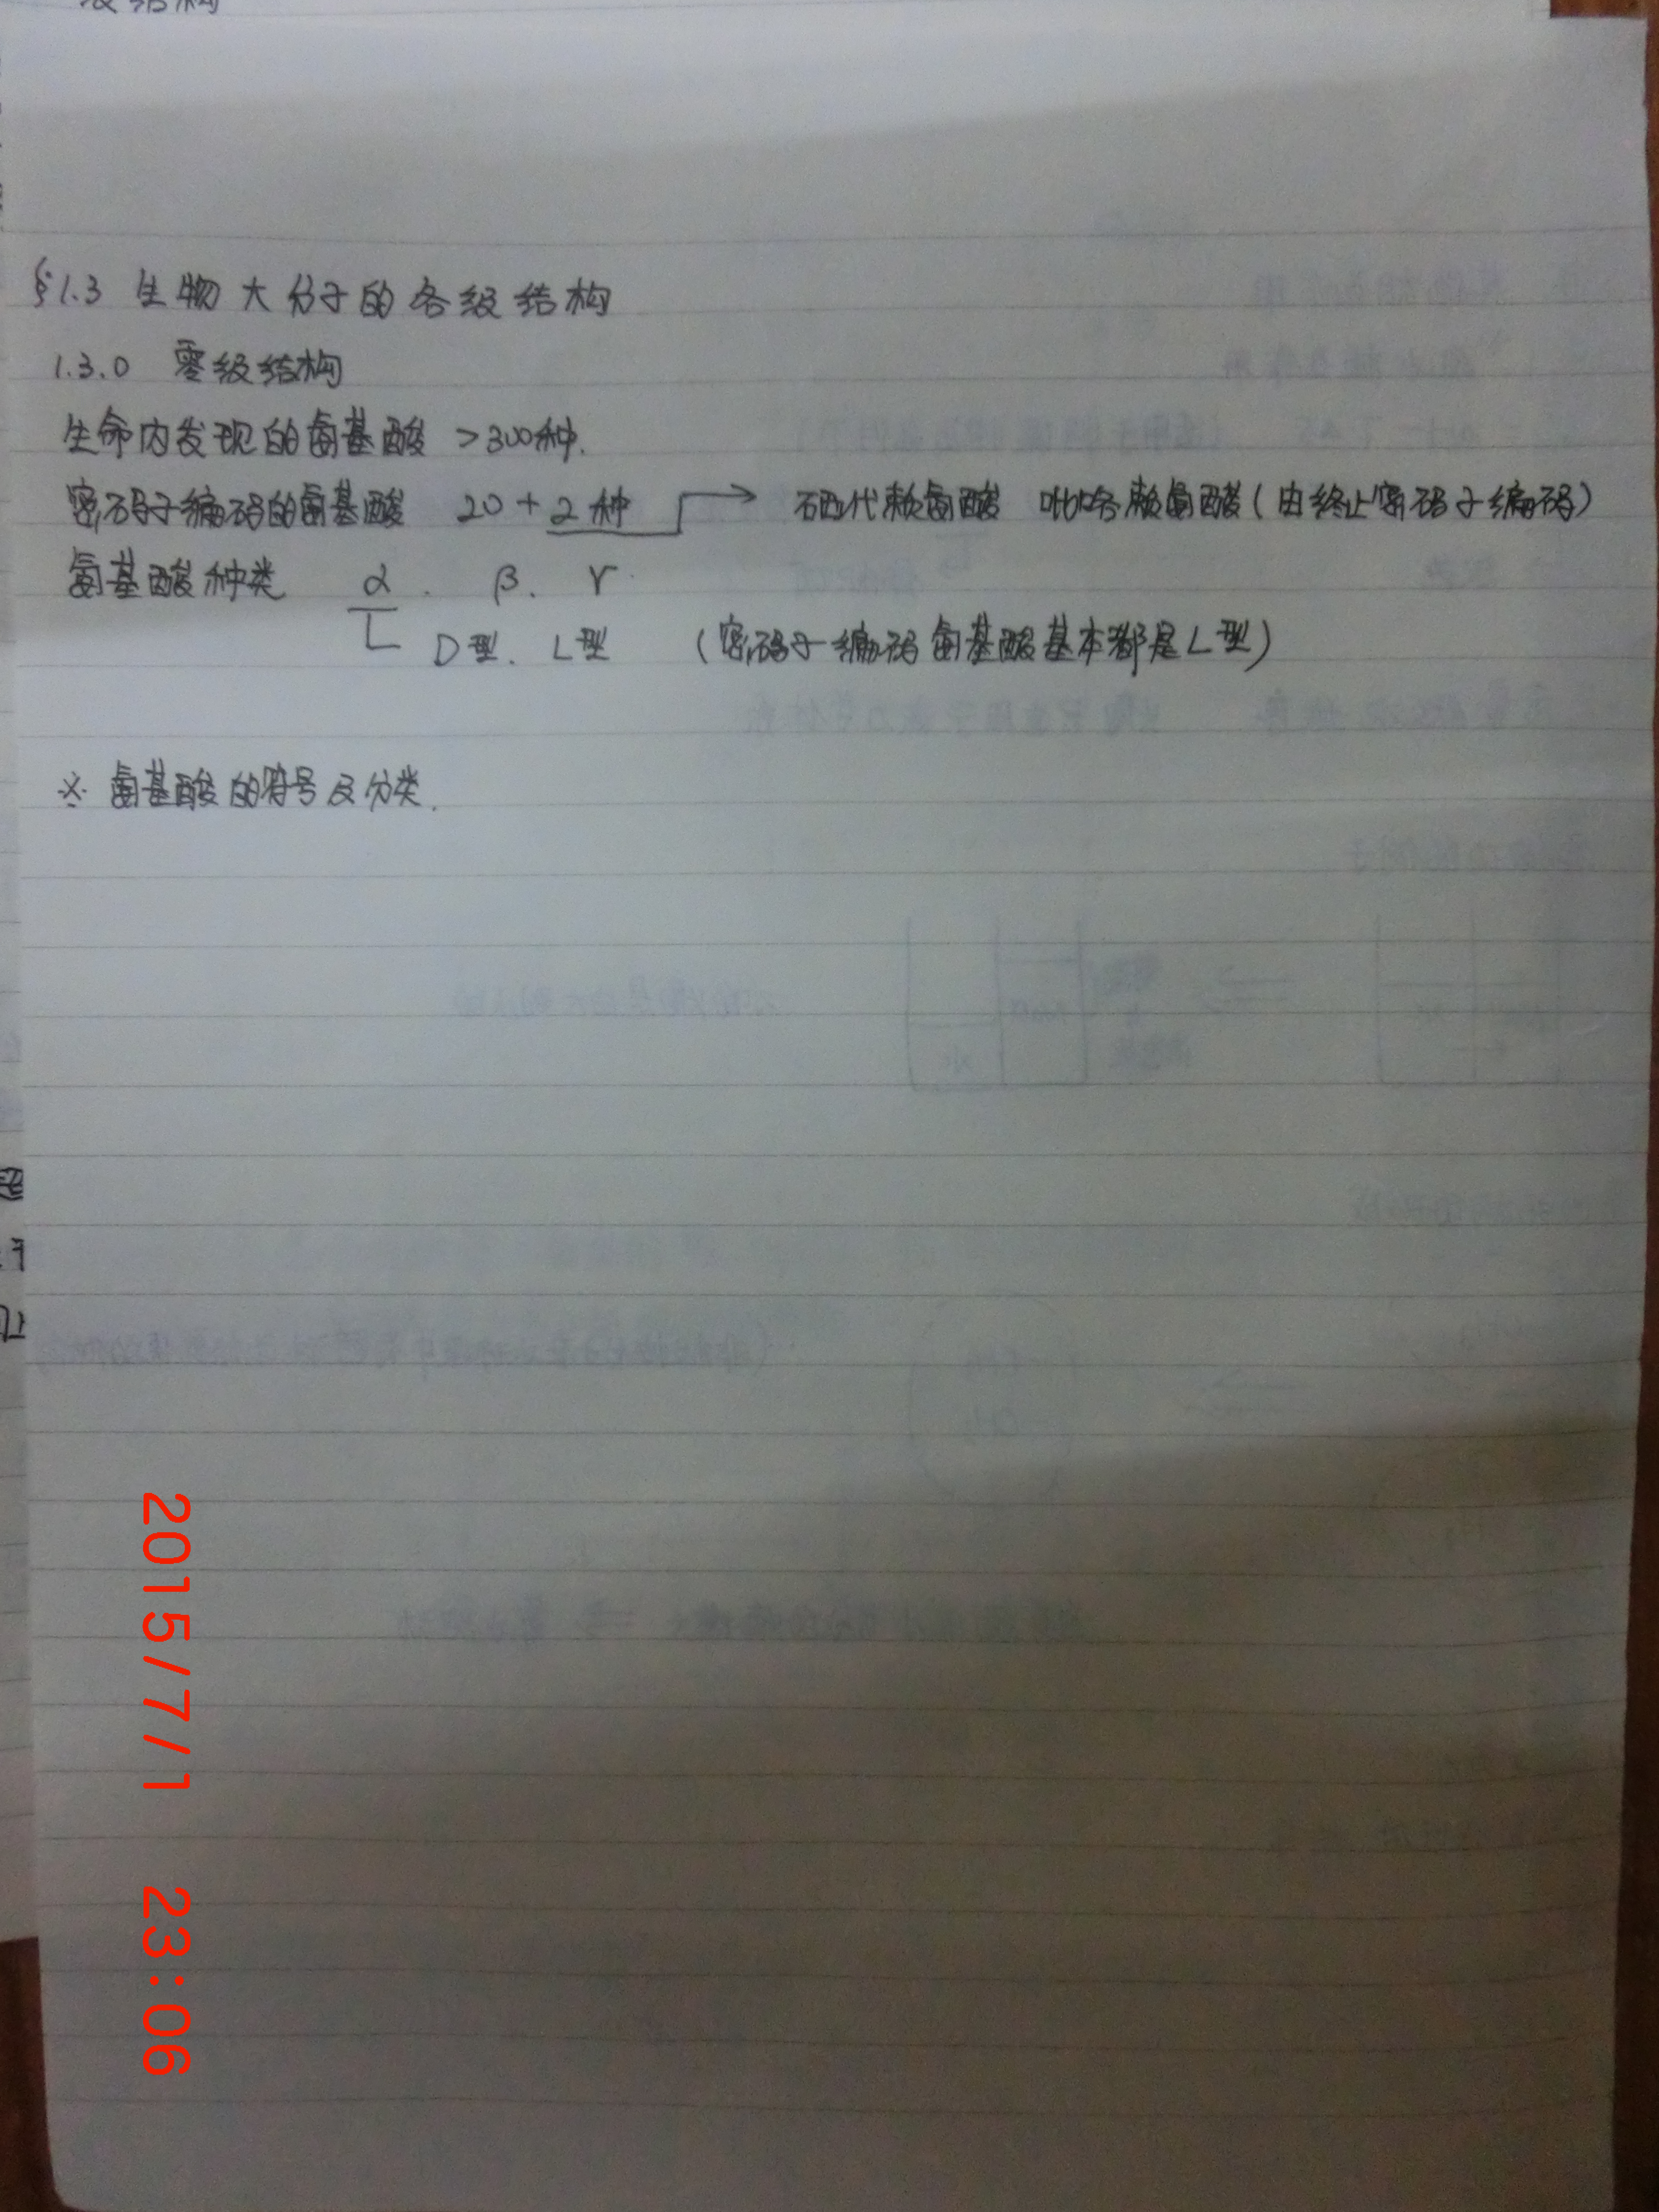 级结构
§1.3 生物大分子的各级结构
1.3.0 零级结构
生命内发现的氨基酸 >300种.
密码子编码的氨基酸 20+2种 → 硒代赖氨酸 吡咯赖氨酸(由终止密码子编码)
氨基酸种类 α. β. γ
D型. L型 (密码子编码氨基酸基本都是L型)
※ 氨基酸的符号及分类.
2015/7/1 23:06